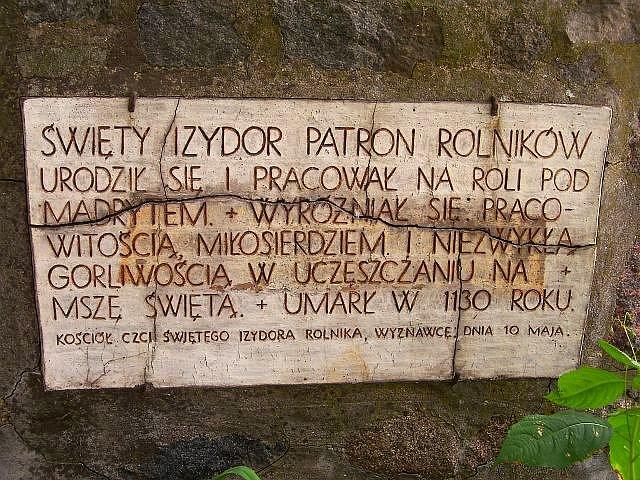 ŚWIĘTY IZYDOR PATRON ROLNIKÓW
URODZIŁ SIĘ I PRACOWAŁ NA ROLI POD
MADRYTEM. + WYRÓŻNIAŁ SIĘ PRACO-
WITOŚCIĄ, MIŁOSIERDZIEM I NIEZWYKŁĄ
GORLIWOŚCIĄ W UCZĘSZCZANIU NA +
MSZĘ ŚWIĘTĄ. + UMARŁ W 1130 ROKU.
KOŚCIÓŁ CZCI ŚWIĘTEGO IZYDORA ROLNIKA, WYZNAWCĘ, DNIA 10 MAJA.